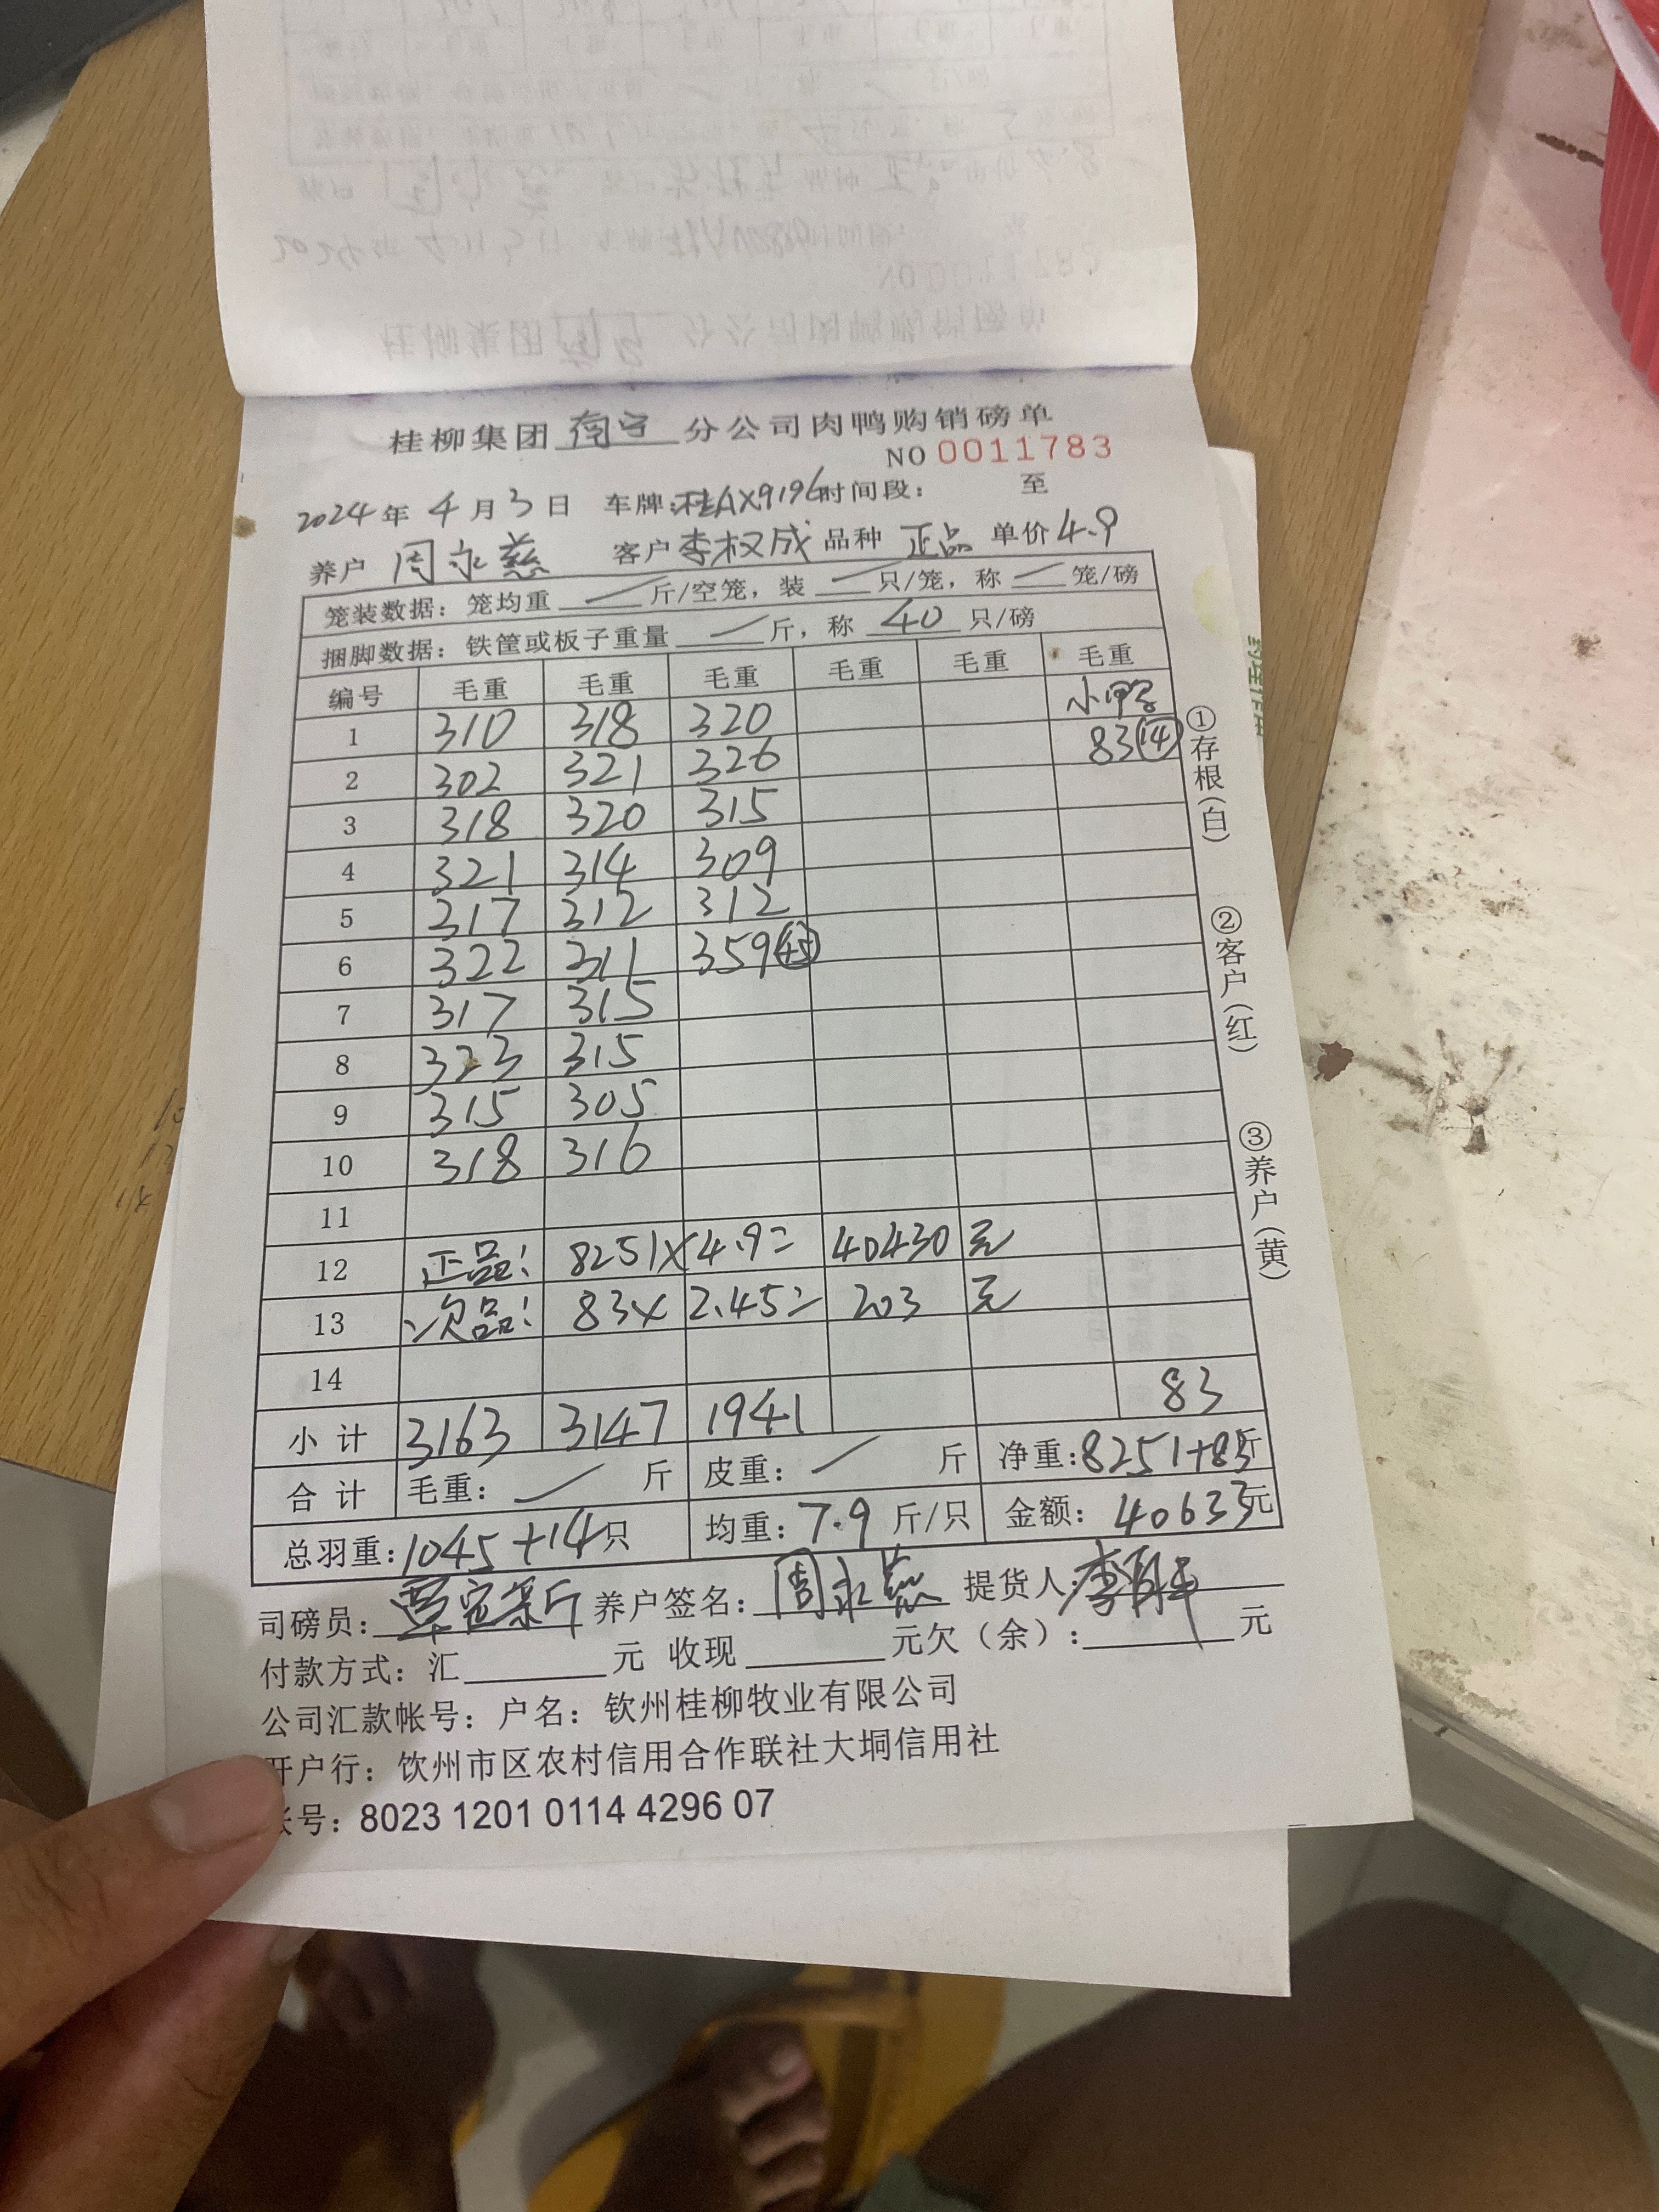 桂柳集团 南宁 分公司肉鸭购销磅单
NO 0011783
2024 年 4 月 3 日 车牌:桂AX9196 时间段: 至
养户 周永慈 客户 李权成 品种 正品 单价 4.9
笼装数据：笼均重 / 斤/空笼，装 / 只/笼，称 / 笼/磅
捆脚数据：铁筐或板子重量 / 斤，称 40 只/磅
编号 毛重 毛重 毛重 毛重 毛重 毛重
1 310 318 320 小甲
2 302 321 326 83⑭
3 318 320 315
4 321 314 309
5 317 312 312
6 322 311 359㊺
7 317 315
8 323 315
9 315 305
10 318 316
11
12 正品: 8251×4.9= 40430 元
13 次品: 83× 2.45= 203 元
14 83
小计 3163 3147 1941
合计 毛重: / 斤 皮重: / 斤 净重:8251+83斤
总羽重:1045+14只 均重:7.9 斤/只 金额: 40633元
司磅员: 养户签名: 周永慈 提货人: 李
付款方式：汇 元 收现 元欠（余）: 元
公司汇款帐号：户名：钦州桂柳牧业有限公司
开户行：钦州市区农村信用合作联社大垌信用社
帐号：8023 1201 0114 4296 07
①存根(白)
②客户(红)
③养户(黄)